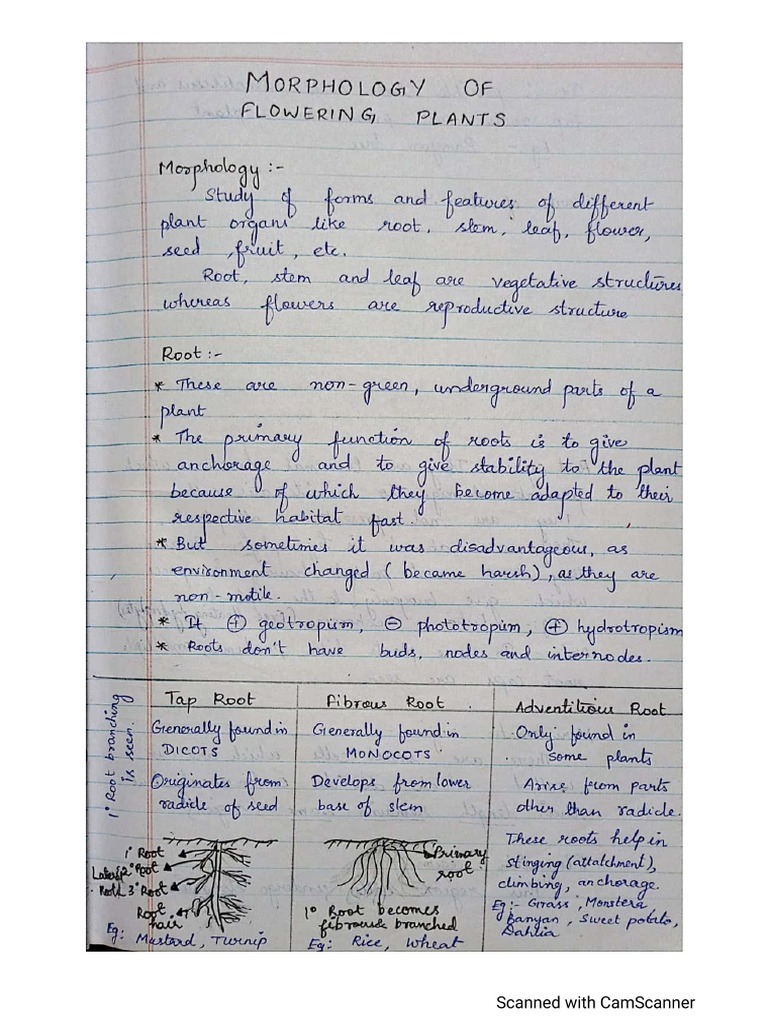 MORPHOLOGY OF
FLOWERING PLANTS
Morphology :-
Study of forms and features of different
plant organs like root, stem, leaf, flower,
seed, fruit, etc.
Root, stem and leaf are vegetative structures
whereas flowers are reproductive structure
Root :-
* These are non-green, underground parts of a
plant
* The primary function of roots is to give
anchorage and to give stability to the plant
because of which they become adapted to their
respective habitat fast.
* But sometimes it was disadvantageous, as
environment changed (became harsh), as they are
non-motile.
* It ⊕ geotropium, ⊖ phototropium, ⊕ hydrotropism
* Roots don't have buds, nodes and internodes.
1° Root branching
is seen.
Tap Root
Generally found in
DICOTS
Originates from
radicle of seed
1° Root
Lateral 2° Root
Root 3° Root
Root
hair
Eg: Mustard, Turnip
Fibrous Root
Generally found in
MONOCOTS
Develops from lower
base of stem
Primary
root
1° Root becomes
fibrous & branched
Eg: Rice, Wheat
Adventitious Root
Only found in
some plants
Arise from parts
other than radicle.
These roots help in
stinging (attatchment),
climbing, anchorage.
Eg:- Grass, Monstera
Banyan, Sweet potato,
Dahlia
Scanned with CamScanner